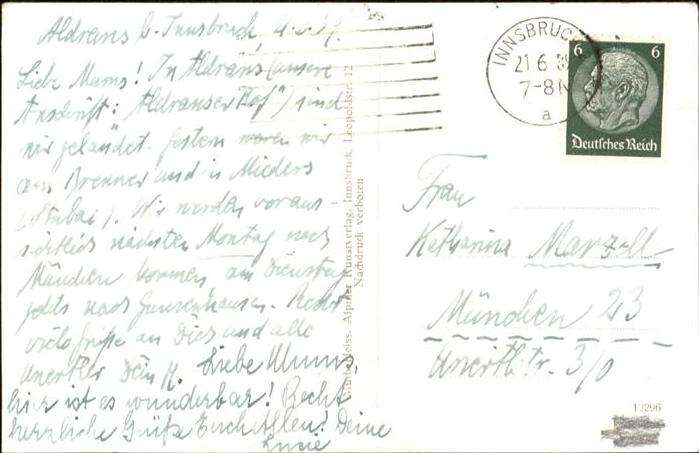 Aldrans b. Innsbruck
Liebe Mums! In Aldrans (unsere
Anschrift: "Aldranser Hof") sind
wir gelandet. Gestern waren wir
am Brenner und in Mieders
(Stubai). Wir werden voraus-
sichtlich nächsten Montag nach
München kommen am Dienstag
gehts nach Gunzenhausen. Recht
viele Grüße an Dich und alle
Anertler Dein H. Liebe Mums,
hier ist es wunderbar! Recht
herzliche Grüße Euch Allen! Deine
Alpiner Kunstverlag, Innsbruck, Leopoldstr. 12
Nachdruck verboten
INNSBRUCK
21 6 39
7-8
a
6 6
Deutsches Reich
Frau
Katharina Marzell
München 23
Anertlstr. 3/0